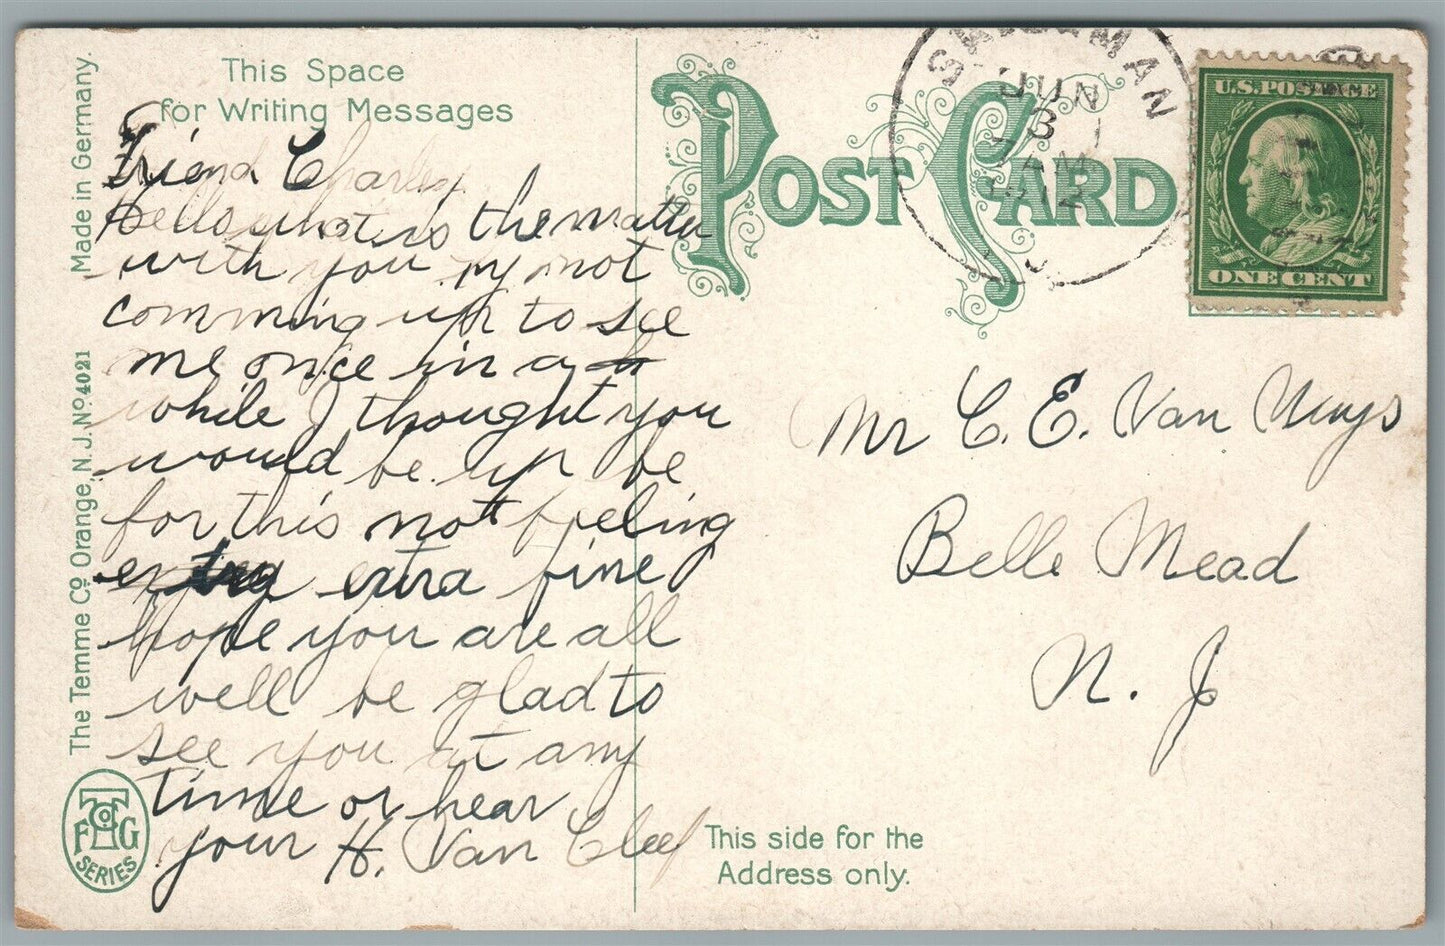 This Space
for Writing Messages
Made in Germany.
The Temme Co Orange, N.J. No 4021
Friend Charley
Hello what is the matter
with you my not
comming up to see
me once in a
while I thought you
would be up be
for this not feeling
extra fine
hope you are all
well be glad to
see you at any
time or hear
your H. Van Cleef
F T Co G
SERIES
POST CARD
JUN
3
7 AM
1912
N.J.
U.S. POSTAGE
ONE CENT
Mr C. E. Van Nuys
Belle Mead
N. J
This side for the
Address only.